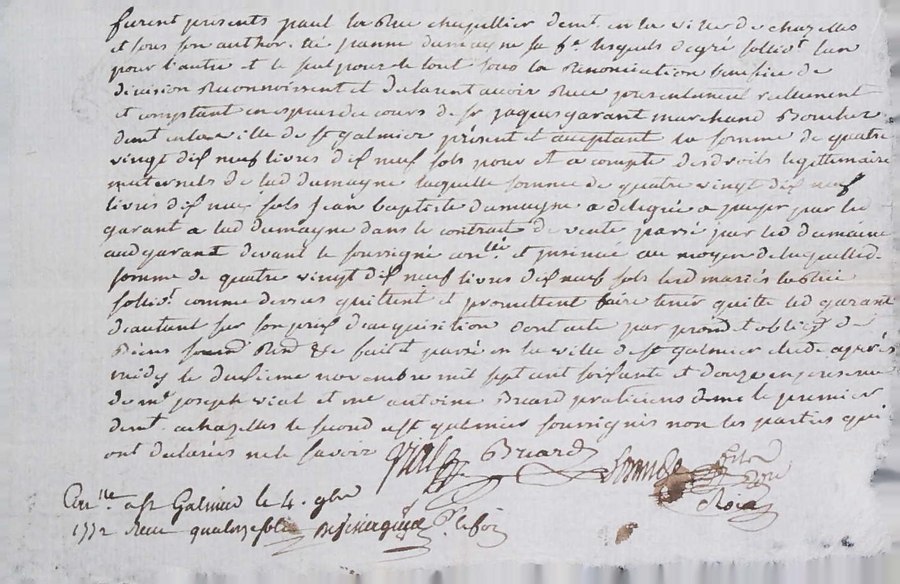 furent presents paul la Rue chapellier demt. en la ville de chazelles
et sous son author. té jeanne dumayne sa fe. lesquels de gré sollidt. lun
pour l'autre et le seul pour le tout sous la Renonciation benefice de
division Reconnoissent et declarent avoir Receu presentement reellement
et comptant en especes du cours de sr jaques garant marchand Boucher
demt en la ville de st galmier présent et acceptant la somme de quatre
vingt dix neuf livres dix neuf sols pour et a compte des droits legitimaire
maternels de lad dumayne laquelle somme de quatre vingt dix neuf
livres dix neuf sols jean baptiste dumayne a deleguée a payer par led
garant a lad dumayne dans le contract de vente passé par led dumaine
aud garant devant le soussigné con.llé et jnsinué au moyen de laquelle d.
somme de quatre vingt dix neuf livres dix neuf sols led mariés
sollidt. comme dessus quittent et promettent faire tenir quitte led garant
d'autant sur son prix d'acquisition dont acte par prom et oblig de
Biens Renon &c fait et passé en la ville de st galmier etude apres
midy le deuxieme novembre mil sept cent soixante et douze en presence
de me joseph vial et me antoine Briard praticiens dem le premier
demt. a chazelles le second a st galmier soussignés non les parties qui
ont declarés ne le savoir Vial Briard
Con.llé a st Galmier le 4. 9bre
1772 Receu quatorze sols